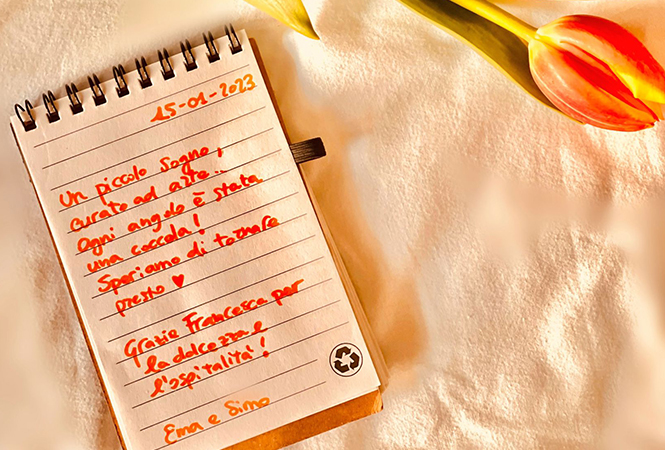 15-01-2023
Un piccolo sogno,
curato ad arte..
ogni angolo è stata
una coccola!
Speriamo di tornare
presto ♥
Grazie Francesca per
la dolcezza e
l'ospitalità!
Ema e Simo